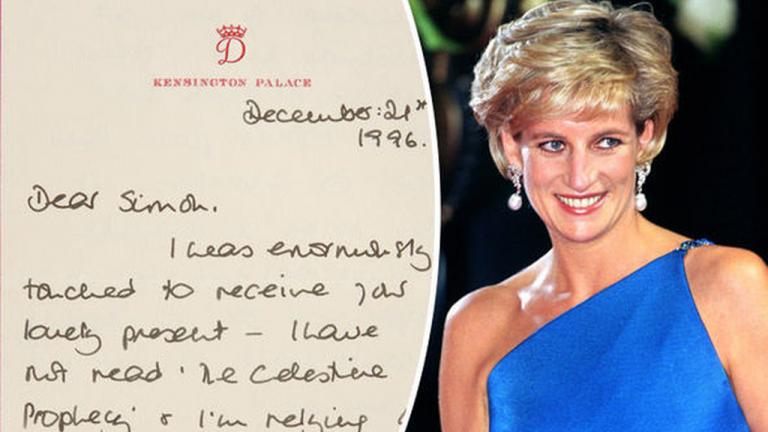 D
KENSINGTON PALACE
December: 21st
1996.
Dear Simon.
I was enormously
touched to receive your
lovely present - I have
not read 'The Celestine
Prophecy' & I'm relying